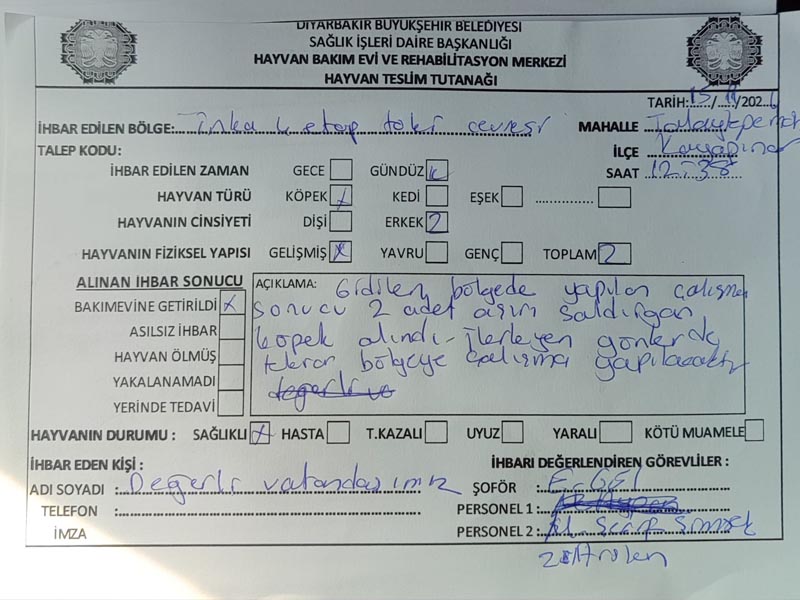 DİYARBAKIR BÜYÜKŞEHİR BELEDİYESİ
SAĞLIK İŞLERİ DAİRE BAŞKANLIĞI
HAYVAN BAKIM EVİ VE REHABİLİTASYON MERKEZİ
HAYVAN TESLİM TUTANAĞI
TARİH: 15/11/202
İHBAR EDİLEN BÖLGE: 4 etap toki çevresi MAHALLE Talaytepe mah
TALEP KODU: İLÇE Kayapınar
İHBAR EDİLEN ZAMAN GECE GÜNDÜZ SAAT 12:38
HAYVAN TÜRÜ KÖPEK x KEDİ EŞEK
HAYVANIN CİNSİYETİ DİŞİ ERKEK 2
HAYVANIN FİZİKSEL YAPISI GELİŞMİŞ x YAVRU GENÇ TOPLAM 2
ALINAN İHBAR SONUCU
BAKIMEVİNE GETİRİLDİ x
ASILSIZ İHBAR
HAYVAN ÖLMÜŞ
YAKALANAMADI
YERİNDE TEDAVİ
AÇIKLAMA: Gidilen bölgede yapılan çalışma
sonucu 2 adet aşırı saldırgan
köpek alındı - ilerleyen günlerde
tekrar bölgeye çalışma yapılacaktır
HAYVANIN DURUMU : SAĞLIKLI x HASTA T.KAZALI UYUZ YARALI KÖTÜ MUAMELE
İHBAR EDEN KİŞİ :
ADI SOYADI : Değerli vatandaşımız
TELEFON :
İMZA
İHBARI DEĞERLENDİREN GÖREVLİLER :
ŞOFÖR : E. GEZİ
PERSONEL 1 :
PERSONEL 2 :